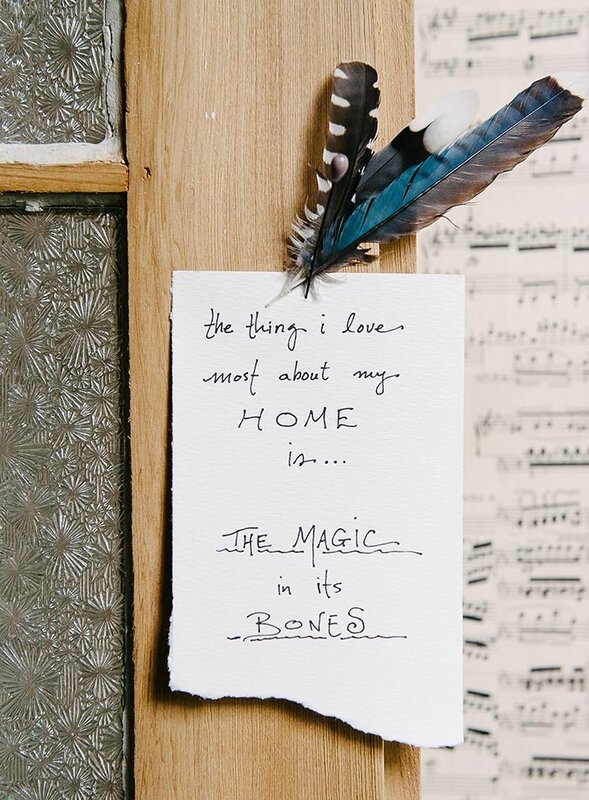 the thing i love
most about my
HOME
is...
THE MAGIC
in its
BONES